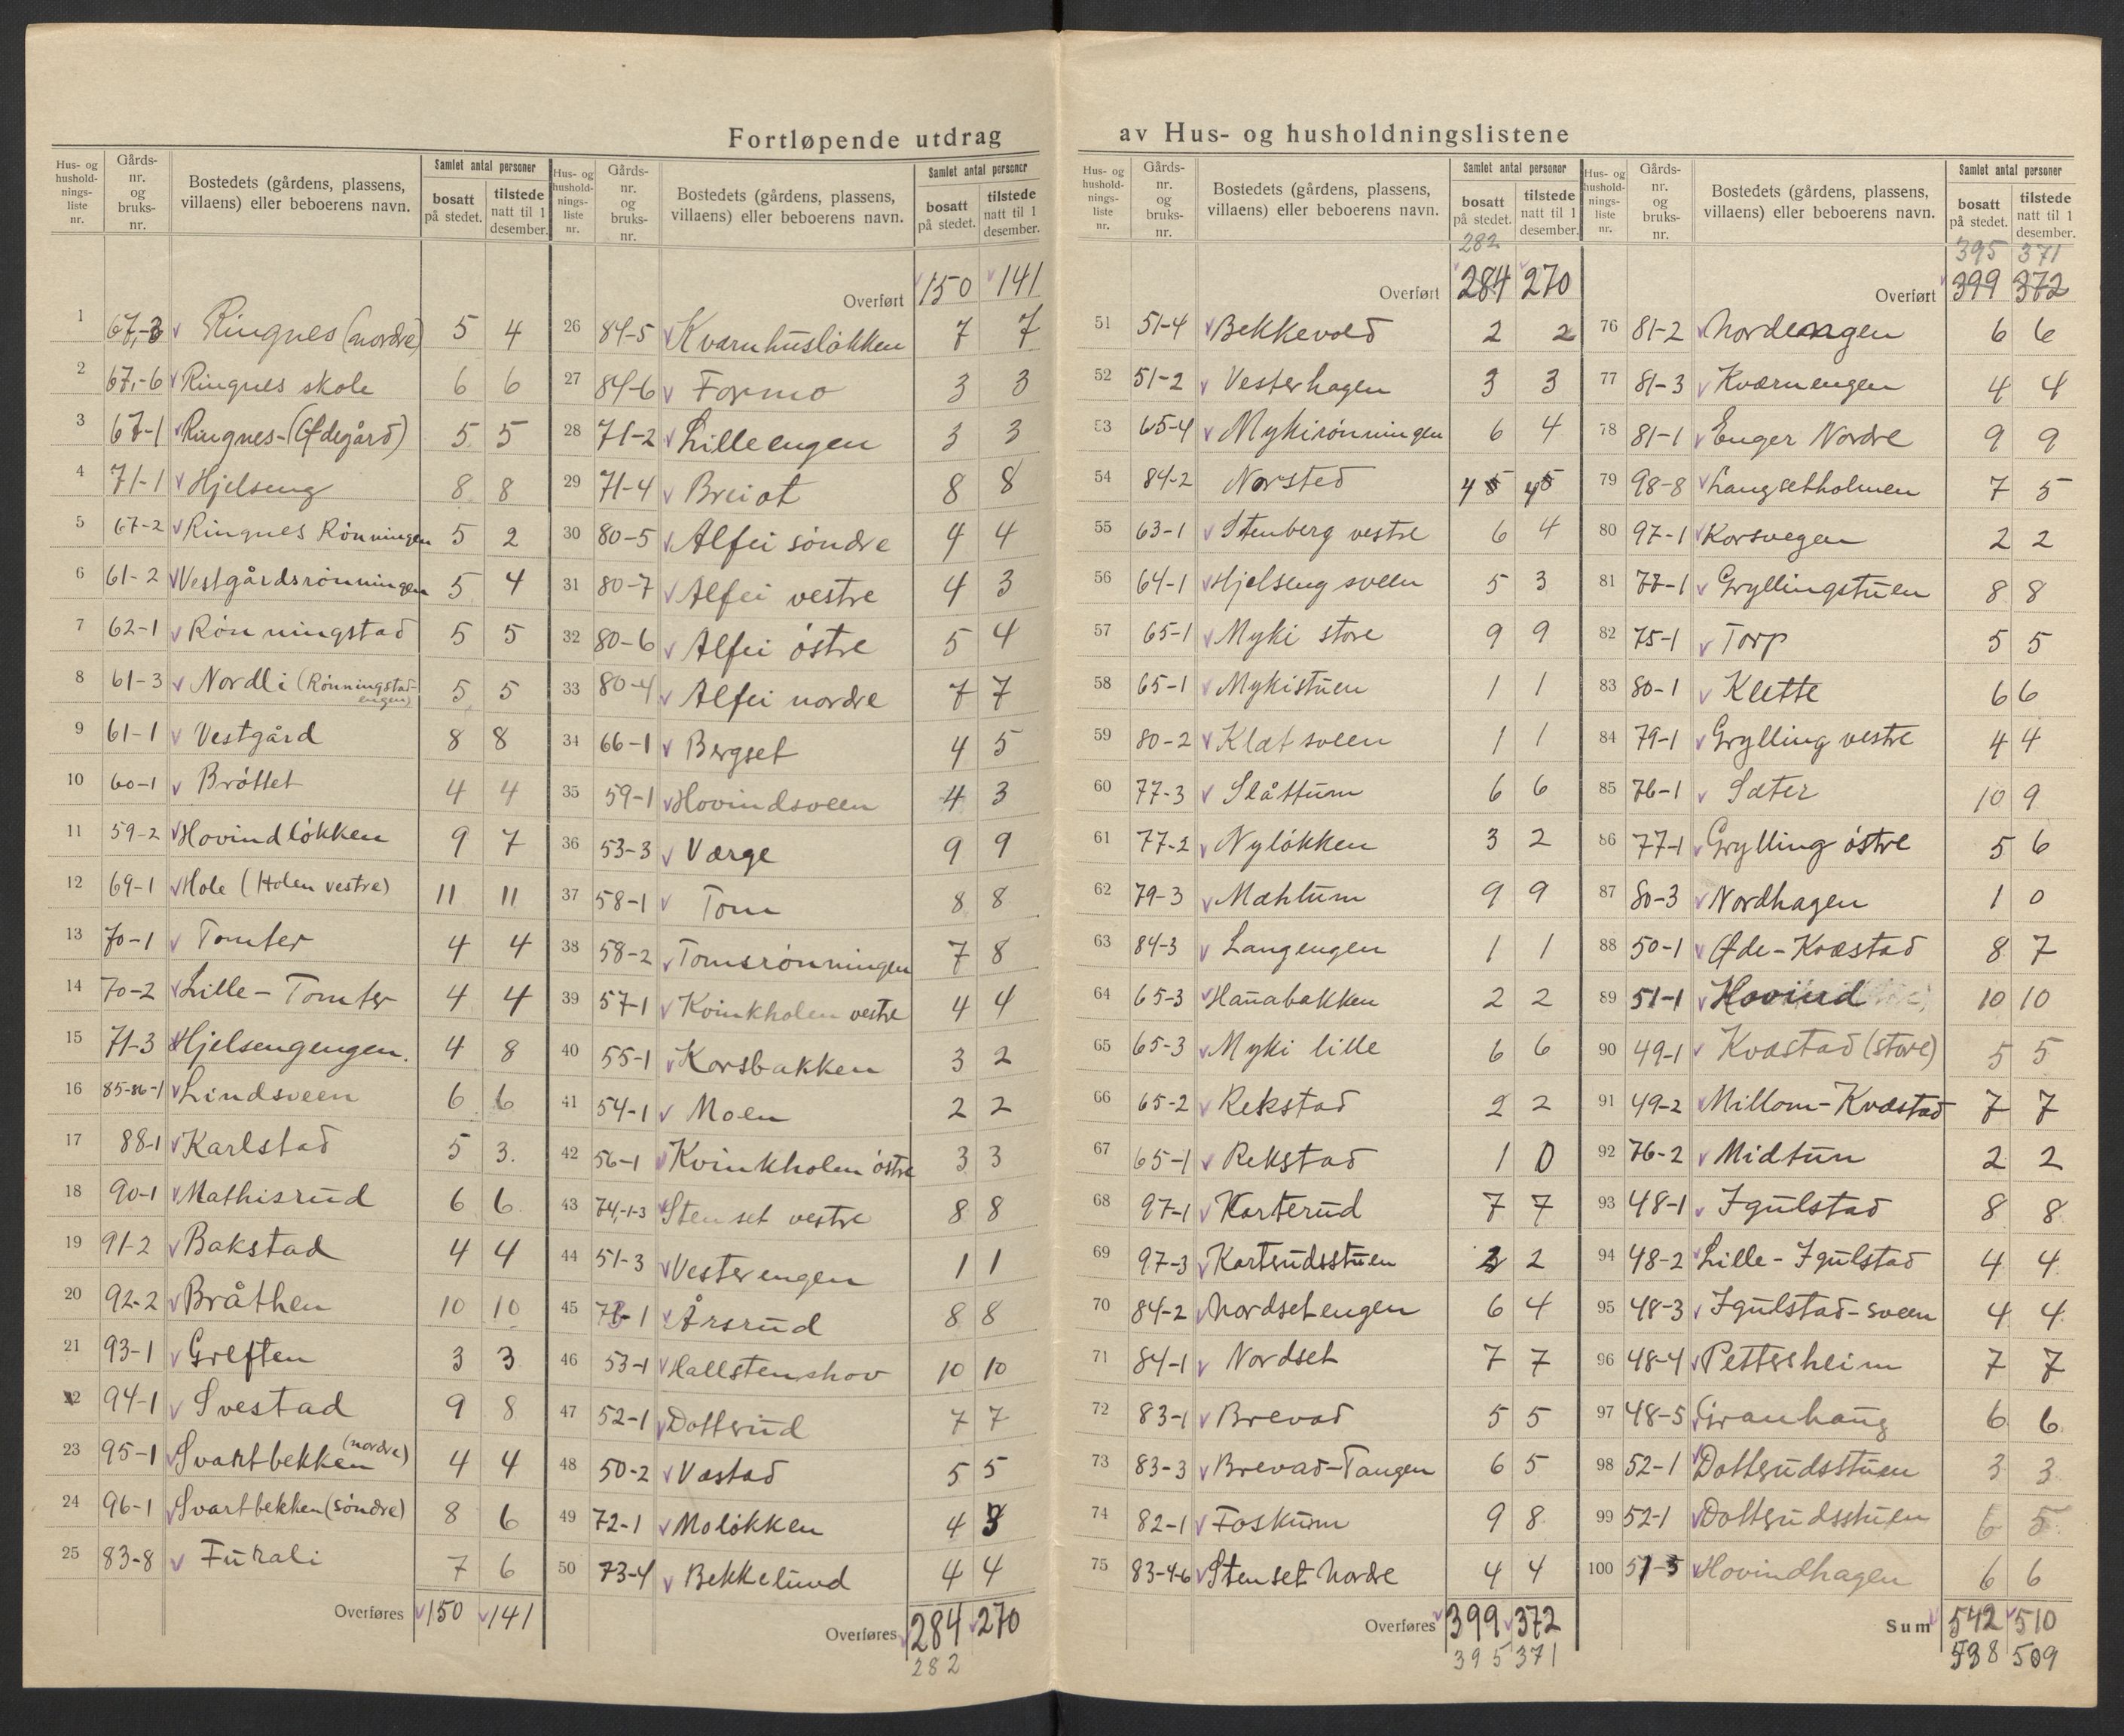 Fortløpende utdrag av Hus- og husholdningslistene
Hus- og husholdnings-liste nr. | Gårds-nr. og bruks-nr. | Bostedets (gårdens, plassens, villaens) eller beboerens navn. | Samlet antal personer | bosatt på stedet. | tilstede natt til 1 desember.
1 67,-3 Ringnes (nordre) 5 4
2 67,-6 Ringnes skole 6 6
3 67-1 Ringnes-(Ødegård) 5 5
4 71-1 Hjelseng 8 8
5 67-2 Ringnes Rønningen 5 2
6 61-2 Vestgårdsrønningen 5 4
7 62-1 Rønningstad 5 5
8 61-3 Nordli (Rønningstad-engen) 5 5
9 61-1 Vestgård 8 8
10 60-1 Bråttet 4 4
11 59-2 Hovindløkken 9 7
12 69-1 Hole (Holen vestre) 11 11
13 70-1 Tomter 4 4
14 70-2 Lille-Tomter 4 4
15 71-3 Hjelsengengen. 4 8
16 85-86-1 Lindsveen 6 6
17 88-1 Karlstad 5 3.
18 90-1 Mathisrud 6 6
19 91-2 Bakstad 4 4
20 92-2 Bråthen 10 10
21 93-1 Greften 3 3
22 94-1 Svestad 9 8
23 95-1 Svartbekken (nordre) 4 4
24 96-1 Svartbekken (søndre) 8 6
25 83-8 Furali 7 6
Overføres 150 141
Hus- og husholdnings-liste nr. | Gårds-nr. og bruks-nr. | Bostedets (gårdens, plassens, villaens) eller beboerens navn. | Samlet antal personer | bosatt på stedet. | tilstede natt til 1 desember.
Overført 150 141
26 84-5 Kvarnhusløkken 7 7
27 84-6 Formo 3 3
28 71-2 Lilleengen 3 3
29 71-4 Breiot 8 8
30 80-5 Alfei søndre 4 4
31 80-7 Alfei vestre 4 3
32 80-6 Alfei østre 5 4
33 80-4 Alfei nordre 7 7
34 66-1 Bergset 4 5
35 59-1 Hovindsveen 4 3
36 53-3 Værge 9 9
37 58-1 Tom 8 8
38 58-2 Tomsrønningen 7 8
39 57-1 Kvinkholen vestre 4 4
40 55-1 Korsbakken 3 2
41 54-1 Moen 2 2
42 56-1 Kvinkholen østre 3 3
43 74,-1-3 Stenset vestre 8 8
44 51-3 Vesterengen 1 1
45 -1 Årsrud 8 8
46 53-1 Hallstenshov 10 10
47 52-1 Dotterud 7 7
48 50-2 Vastad 5 5
49 72-1 Moløkken 4 3
50 73-4 Bekkelund 4 4
Overføres 284 270
282
Hus- og husholdnings-liste nr. | Gårds-nr. og bruks-nr. | Bostedets (gårdens, plassens, villaens) eller beboerens navn. | Samlet antal personer | bosatt på stedet. | tilstede natt til 1 desember.
282
Overført 284 270
51 51-4 Bekkevold 2 2
52 51-2 Vesterhagen 3 3
53 65-4 Mykirønningen 6 4
54 84-2 Norsted 4 5 4 5
55 63-1 Stenberg vestre 6 4
56 64-1 Hjelseng sveen 5 3
57 65-1 Myki store 9 9
58 65-1 Mykistuen 1 1
59 80-2 Klætsveen 1 1
60 77-3 Slåttum 6 6
61 77-2 Nyløkken 3 2
62 79-3 Mæhlum 9 9
63 84-3 Langengen 1 1
64 65-3 Hanabakken 2 2
65 65-3 Myki lille 6 6
66 65-2 Rekstad 2 2
67 65-1 Rekstad 1 0
68 97-1 Karterud 7 7
69 97-3 Karterudsstuen 2 2
70 84-2 Nordsetengen 6 4
71 84-1 Nordset 7 7
72 83-1 Brevad 5 5
73 83-3 Brevad-Tangen 6 5
74 82-1 Foskum 9 8
75 83-4-6 Stenset Nordre 4 4
Overføres 399 372
395 371
Hus- og husholdnings-liste nr. | Gårds-nr. og bruks-nr. | Bostedets (gårdens, plassens, villaens) eller beboerens navn. | Samlet antal personer | bosatt på stedet. | tilstede natt til 1 desember.
395 371
Overført 399 372
76 81-2 Nordengen 6 6
77 81-3 Kværnengen 4 4
78 81-1 Enger Nordre 9 9
79 98-8 Langsetholmen 7 5
80 97-1 Korsvegen 2 2
81 77-1 Gryllingstuen 8 8
82 75-1 Torp 5 5
83 80-1 Klette 6 6
84 79-1 Grylling vestre 4 4
85 76-1 Sæter 10 9
86 77-1 Grylling østre 5 6
87 80-3 Nordhagen 1 0
88 50-1 Øde-Kvæstad 8 7
89 51-1 Hovind 10 10
90 49-1 Kvæstad (store) 5 5
91 49-2 Millom-Kvæstad 7 7
92 76-2 Midtun 2 2
93 48-1 Igulstad 8 8
94 48-2 Lille-Igulstad 4 4
95 48-3 Igulstad-sveen 4 4
96 48-4 Pettersheim 7 7
97 48-5 Granhaug 6 6
98 52-1 Dotterudsstuen 3 3
99 52-1 Dotterudsstuen 6 5
100 51-5 Hovindhagen 6 6
Sum 542 510
538 509